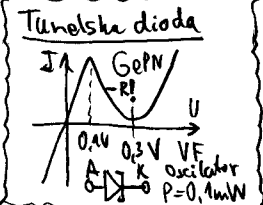 Tunelska dioda
I GePN
-R!
U
0,1V 0,3V VF
A K Oscilator
P=0,1mW